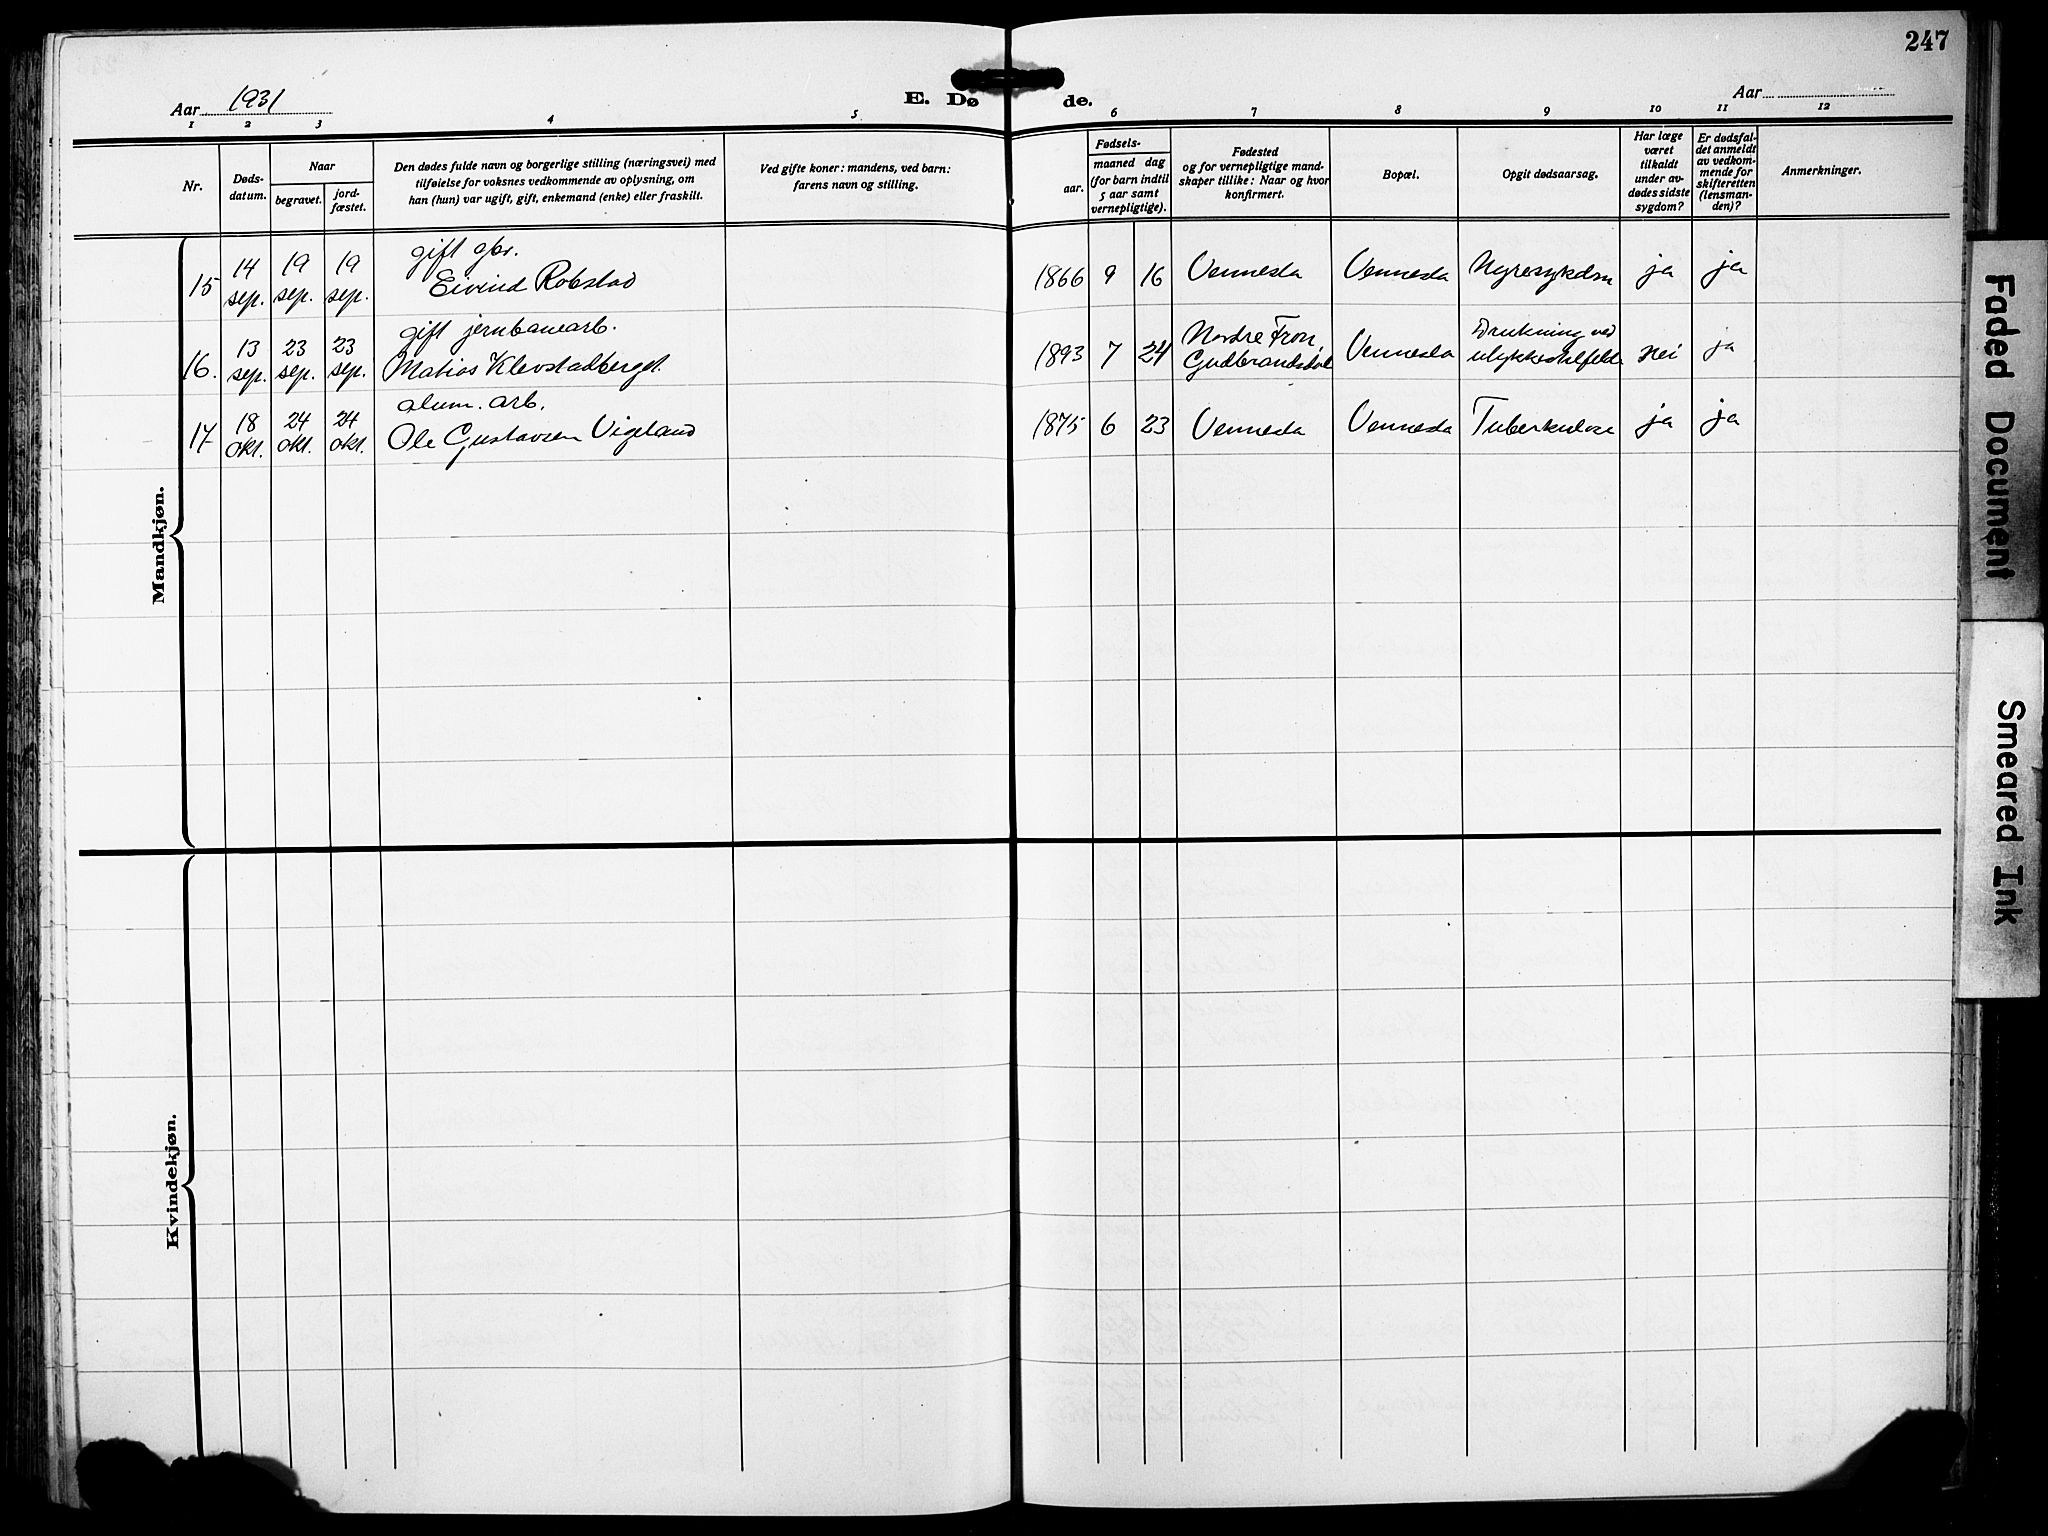 247
Aar 1931
E. Dø
de.
Aar
1 2 3 4 5 6 7 8 9 10 11 12
Nr.
Døds-
datum.
Naar
begravet.
jord-
fæstet.
Den dødes fulde navn og borgerlige stilling (næringsvei) med
tilføielse for voksnes vedkommende av oplysning, om
han (hun) var ugift, gift, enkemand (enke) eller fraskilt.
Ved gifte koner: mandens, ved barn:
farens navn og stilling.
Fødsels-
aar.
maaned dag
(for barn indtil
5 aar samt
vernepligtige).
Fødested
og for vernepligtige mand-
skaper tillike: Naar og hvor
konfirmert.
Bopæl.
Opgit dødsaarsag.
Har læge
været
tilkaldt
under av-
dødes sidste
sygdom?
Er dødsfal-
det anmeldt
av vedkom-
mende for
skifteretten
(lensman-
den)?
Anmerkninger.
Mandkjøn.
gift gbr.
15 14 sep. 19 sep. 19 sep. Eivind Robstad 1866 9 16 Vennesla Vennesla Nyresykdom ja ja
gift jernbanearb.
16. 13 sep. 23 sep. 23 sep. Matias Klevstadberget. 1893 7 24 Nordre Fron, Gudbrandsdal Vennesla Drukning ved ulykkestilfelde nei ja
alum. arb.
17 18 okt. 24 okt. 24 okt. Ole Gustavsen Vigeland 1875 6 23 Vennesla Vennesla Tuberkulose ja ja
Kvindekjøn.
Faded Document
Smeared Ink